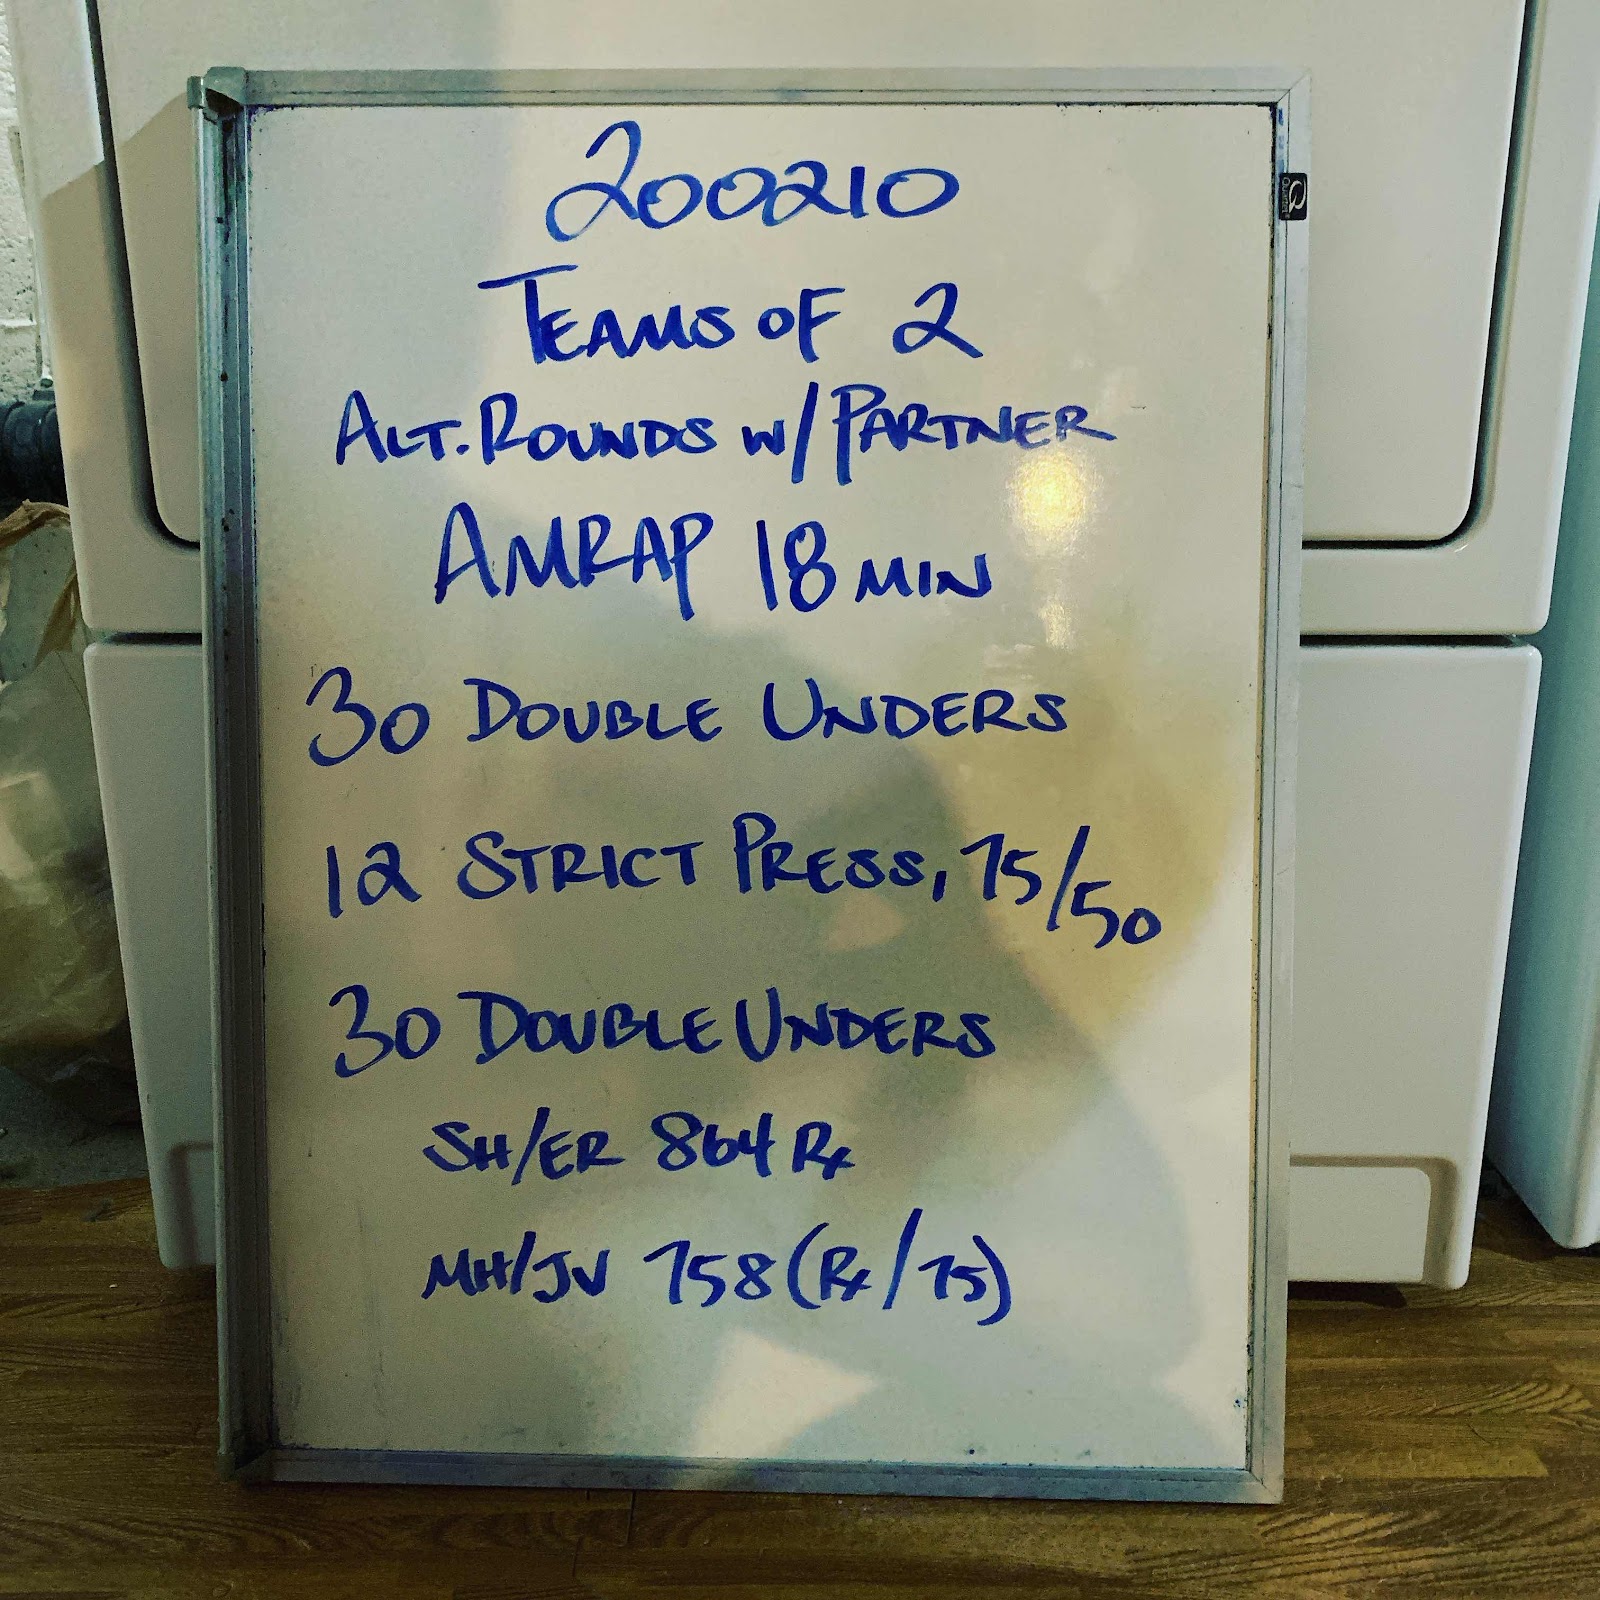 200210
TEAMS OF 2
ALT. ROUNDS W/ PARTNER
AMRAP 18 MIN
30 DOUBLE UNDERS
12 STRICT PRESS, 75/50
30 DOUBLE UNDERS
SH/ER 864 Rx
MH/JV 758 (Rx/75)
Quartet